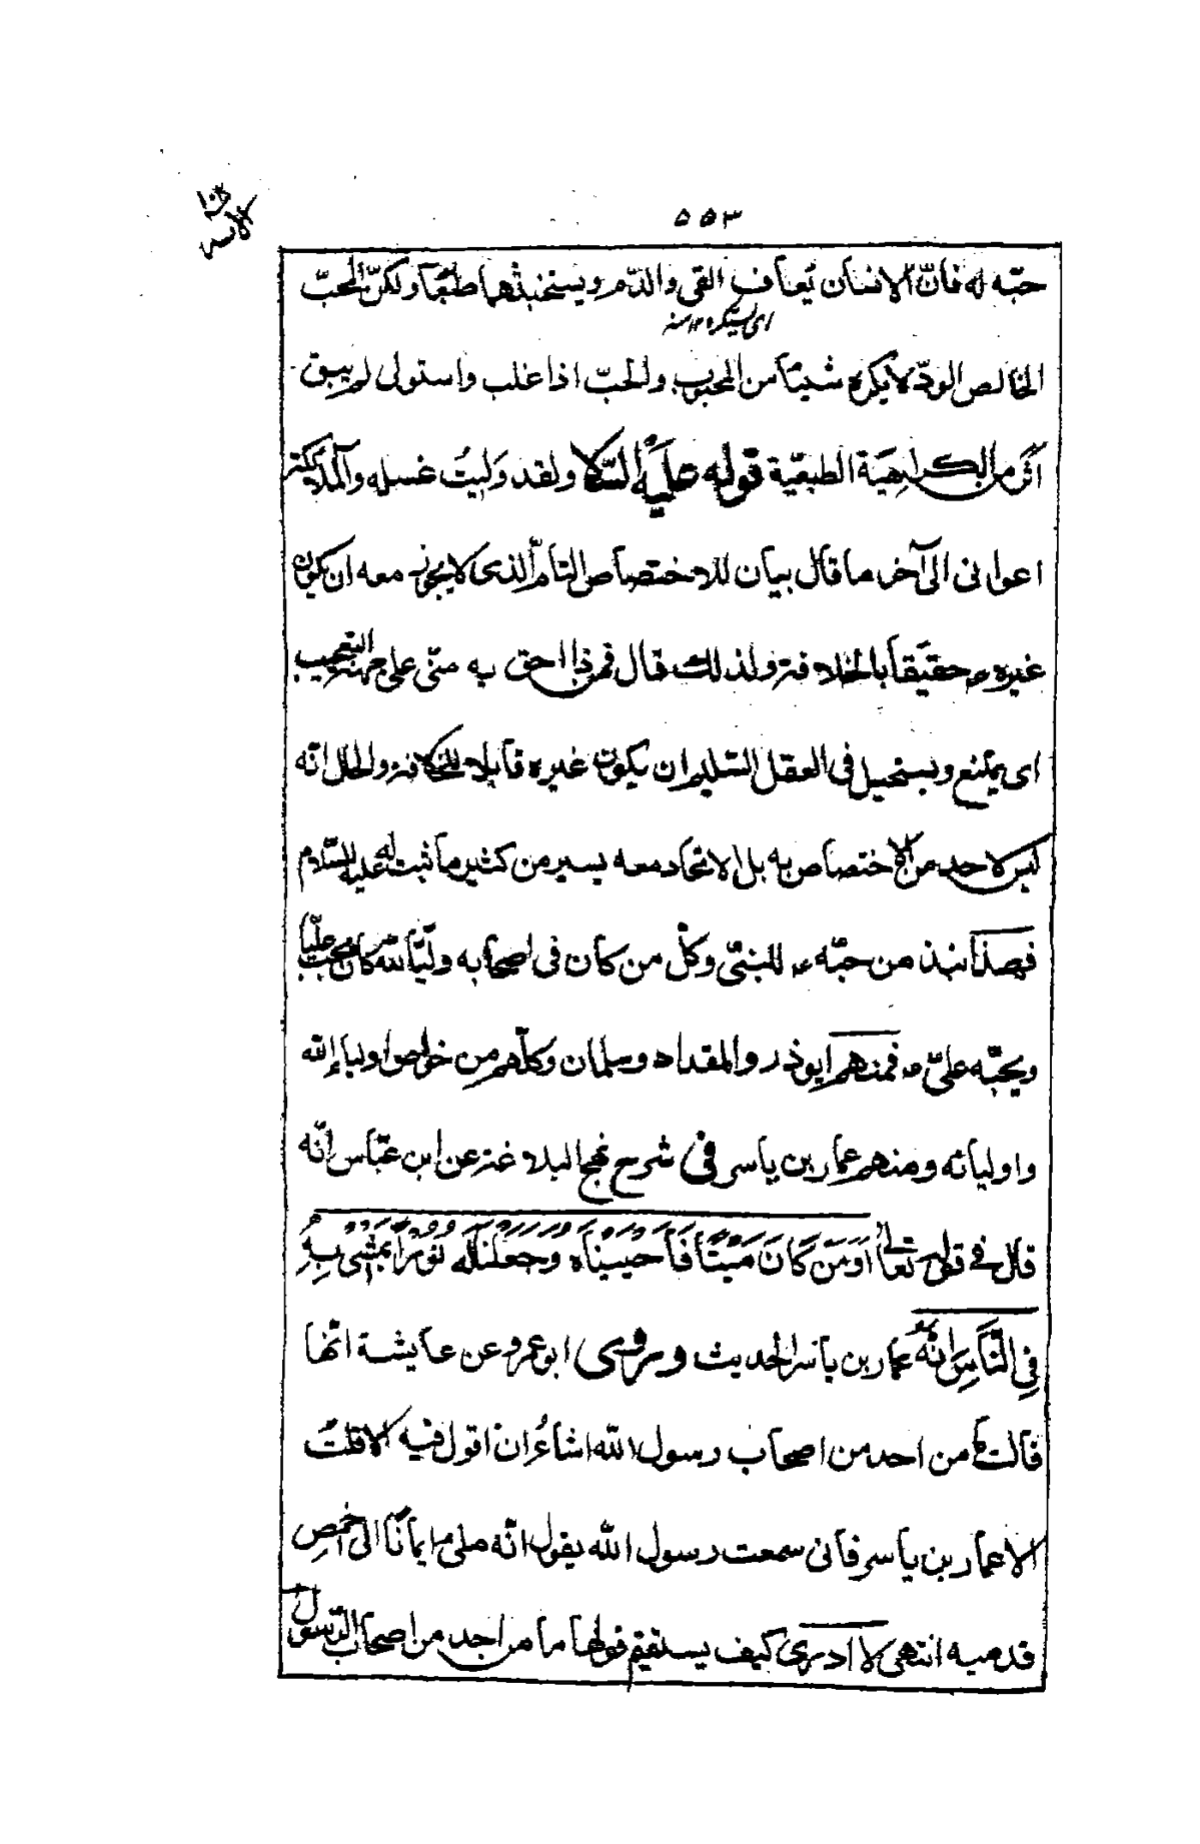 ۵۵۳
حبّه له فانّ الانسان يُعاف القى والدّم ويستخبثهما طبعًا ولكنّ المحبّ
اى يستكره ١٢ منه
الخالص الودّ لا يكره شيئًا من المحبوب والحبّ اذا غلب واستولى لم يبق
اثر من الكراهيَة الطبعيّة قوله عليه السّلام ولقد وَليتُ غسله والملائكة
اعوانى الى آخر ما قال بيان للاختصاص التامّ الذى لا يجوز معه ان يكون
غيره حقيقًا بالخلافة ولذلك قال فمن ذا احق به منّى على جهة التعجيب
اى يمتنع ويستحيل فى العقل السّليم ان يكون غيره قابلا للخلافة والحال انّه
ليس لاحد من الاختصاص به بل الاتحاد معه يسير من كثير ما ثبت له عليه السّلام
فهذا نبذ من حبّه للنبىّ وكلّ من كان فى اصحابه وليّا لله كان يحبّ عليّا
ويحبّه علىّ فمنهم ابوذر والمقداد وسلمان وكلّهم من خواص اولياء الله
واوليائه ومنهم عمار بن ياسر فى شرح نهج البلاغة عن ابن عبّاس انّه
قال فى قوله تعالى اَوَمَن كَانَ مَيْتًا فَاَحيَيْنَاهُ وَجَعَلْنَا لَهُ نُورًا يَمْشِى بِهِ
فِى النَّاسِ انّه عمار بن ياسر الحديث وروى ابو عمرو عن عايشة انّها
قالت ما من احد من اصحاب رسول الله اشاءُ ان اقول فيه الا قلتُ
الا عمار بن ياسر فانى سمعت رسول الله يقول انّه ملئ ايمانًا الى اخمص
قدميه انتهى لا ادرى كيف يستقيم قولها ما من احد من اصحاب الرّسول